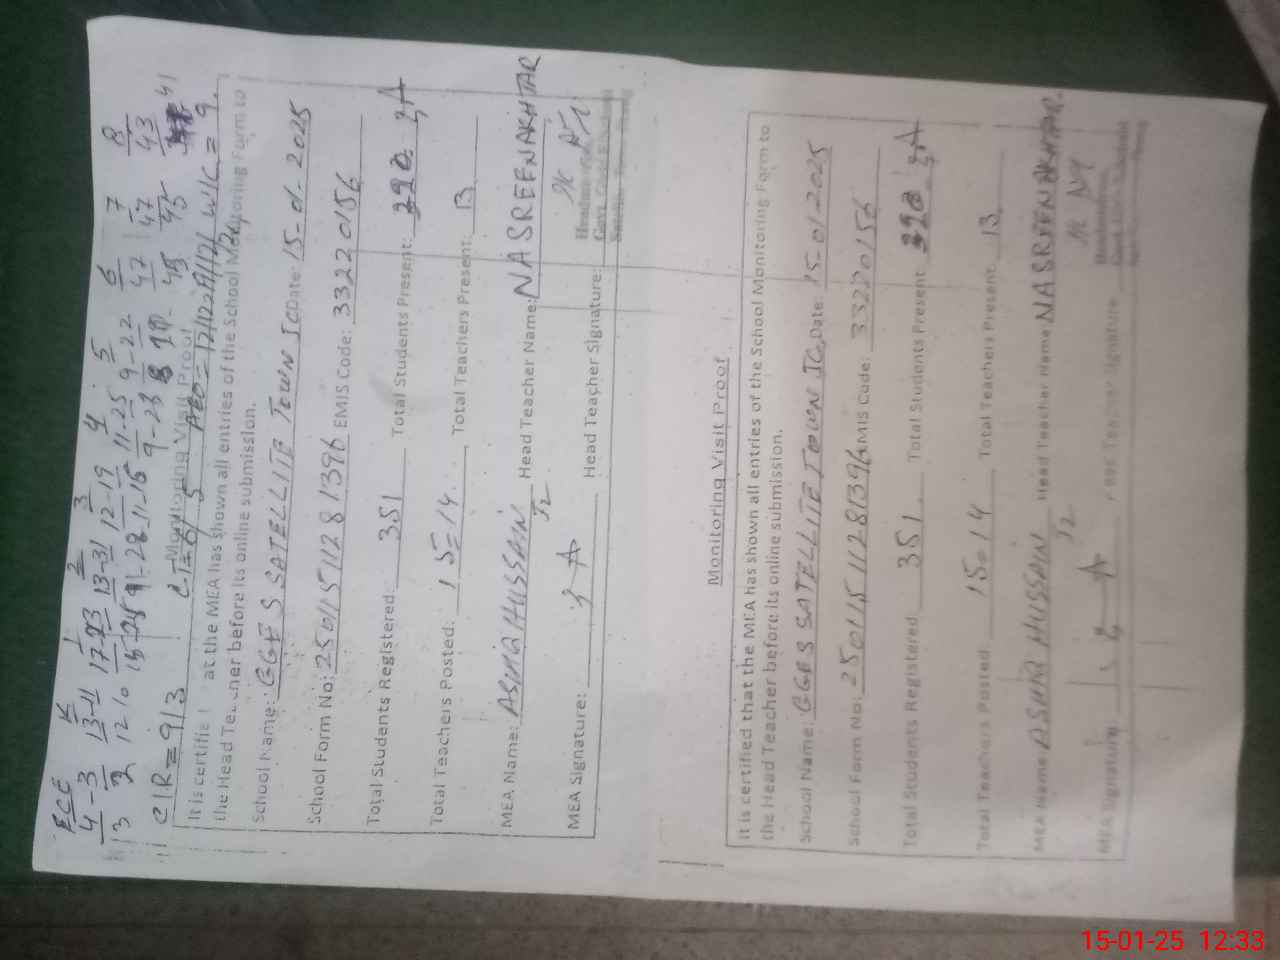 ECE K 1 2 3 4 5 6 7 8
4-3 13-11 17-23 13-31 12-19 11-25 9-22 47 47 43
3 2 12 10 9-23 8 45 45 41
C/R = 9/3
W/C = 9
Monitoring Visit Proof
It is at the MEA has shown all entries of the School Monitoring Form to
the Head Teacher before its online submission.
School Name: GGES SATELLITE TOWN JC Date: 15-01-2025
School Form No: 25011511281396 EMIS Code: 33220156
Total Students Registered: 351 Total Students Present:
Total Teachers Posted: 15-14 Total Teachers Present: 13
MEA Name: ASHIQ HUSSAIN Head Teacher Name: NASREEN AKHTAR
MEA Signature: Head Teacher Signature:
Monitoring Visit Proof
It is certified that the MEA has shown all entries of the School Monitoring Form to
the Head Teacher before its online submission.
School Name: GGES SATELLITE TOWN JC Date: 15-01-2025
School Form No: 25011511281396 EMIS Code: 33220156
Total Students Registered 351 Total Students Present
Total Teachers Posted 15-14 Total Teachers Present 13
MEA Name: ASHIQ HUSSAIN Head Teacher Name NASREEN AKHTAR
MEA Signature Head Teacher Signature
15-01-25 12:33